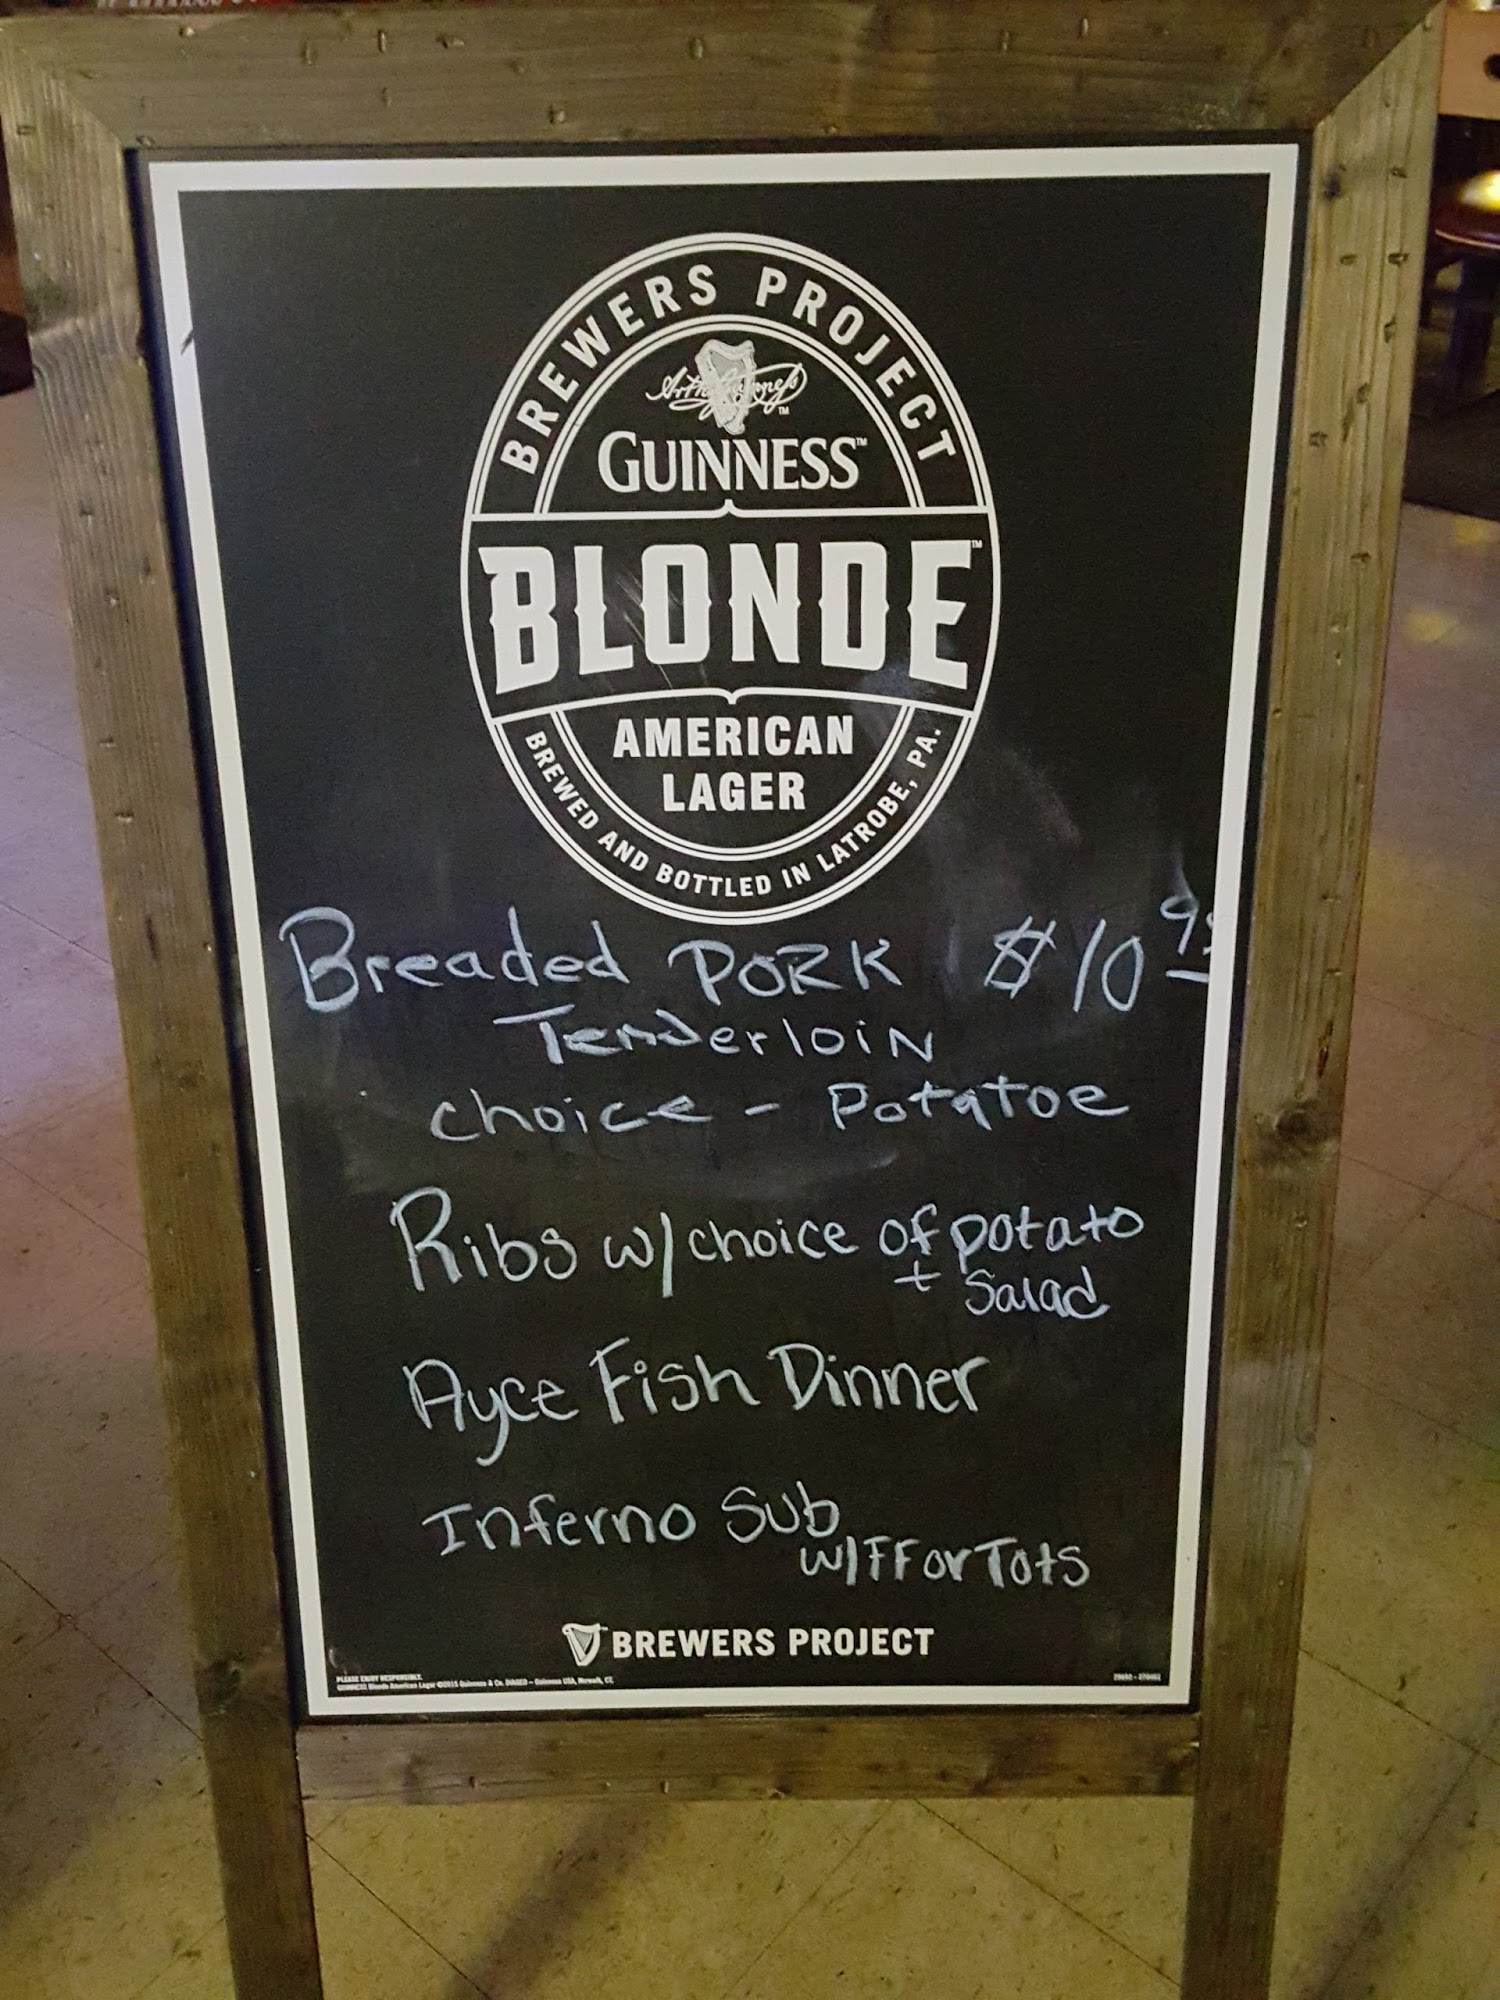 BREWERS PROJECT
GUINNESS™
BLONDE™
AMERICAN
LAGER
BREWED AND BOTTLED IN LATROBE, PA.
Breaded PORK $10
Tenderloin
choice - Potatoe
Ribs w/choice of potato
+ Salad
Ayce Fish Dinner
Inferno Sub
w/FF or Tots
BREWERS PROJECT
PLEASE ENJOY RESPONSIBLY.